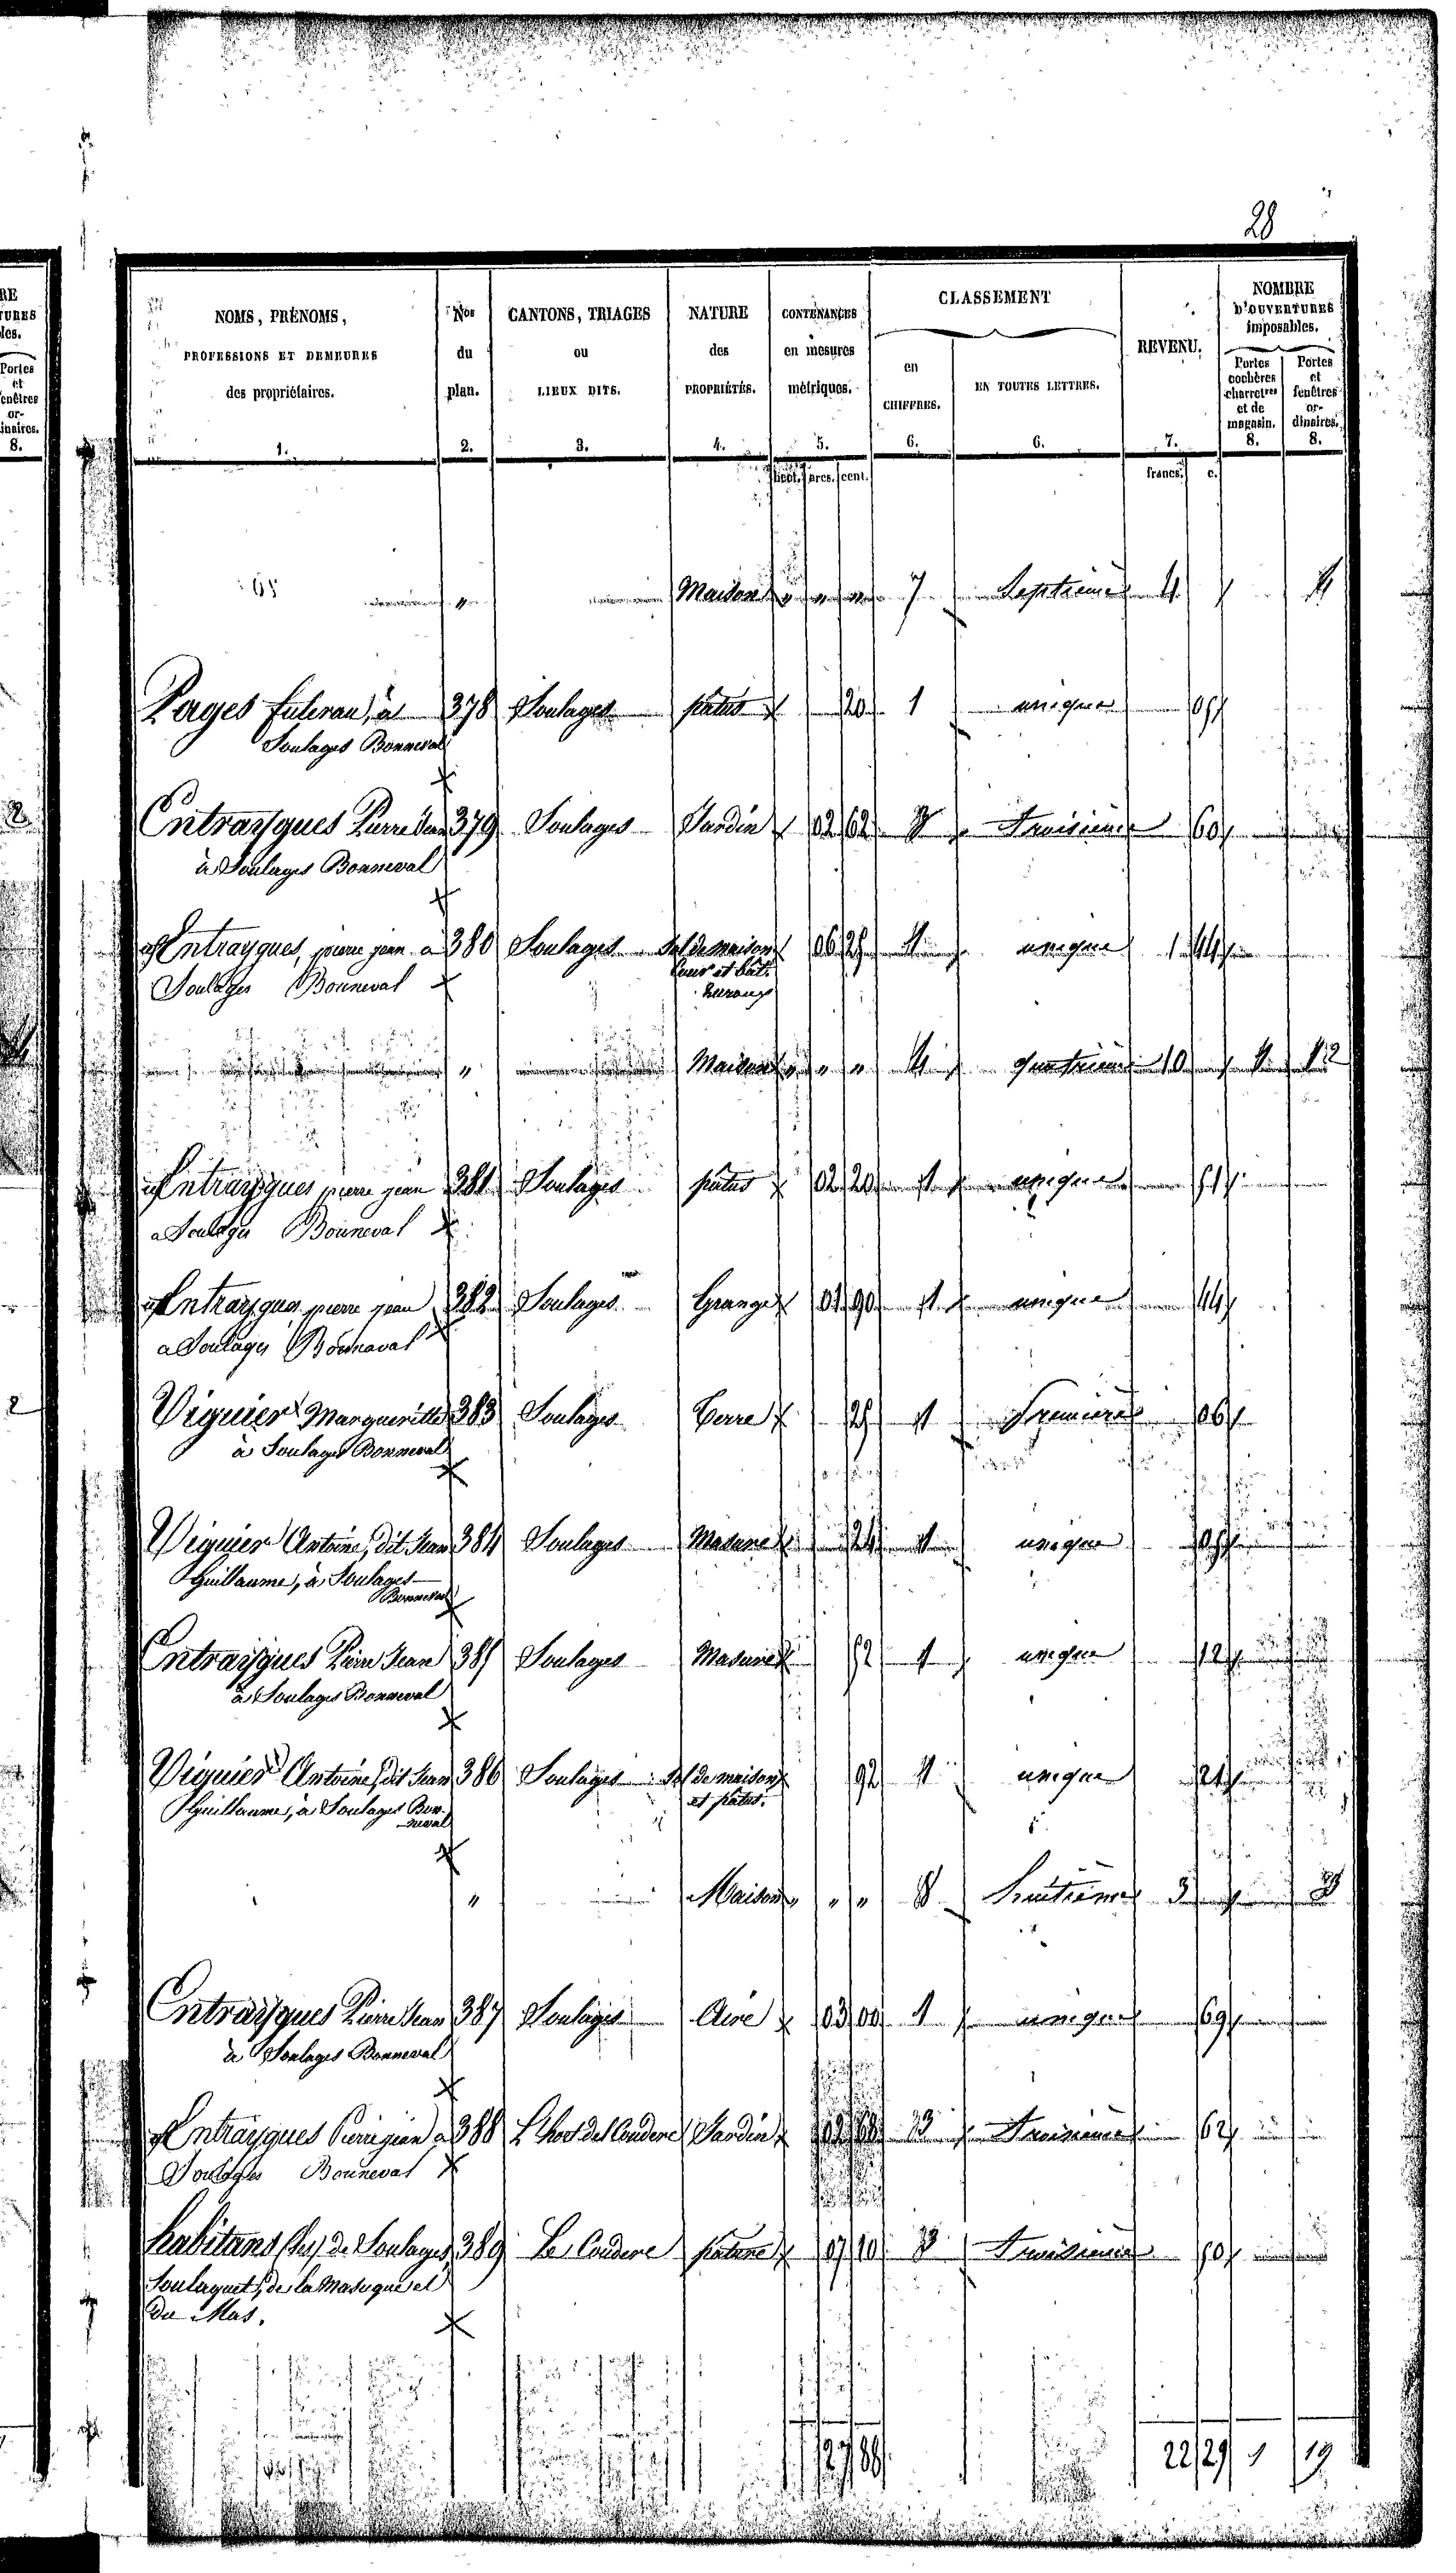 28
NOMS, PRÉNOMS, PROFESSIONS ET DEMEURES des propriétaires. 1.
Nos du plan. 2.
CANTONS, TRIAGES ou LIEUX DITS. 3.
NATURE des PROPRIÉTÉS. 4.
CONTENANCES en mesures métriques. 5.
CLASSEMENT
en CHIFFRES. 6.
EN TOUTES LETTRES. 6.
REVENU. 7.
NOMBRE D'OUVERTURES imposables.
Portes cochères charretres et de magasin. 8.
Portes et fenêtres or-dinaires. 8.
hect. ares. cent. francs. c.
" Maison " " " 7 Septième 4 4
Pages à 378 Soulages patus 20 1 unique 05
Soulages Bonneval
Entraygues Pierre Jean 379 Soulages Jardin 02 62 3 Troisième 60
à Soulages Bonneval
Entraygues, pierre jean a 380 Soulages Sol de maison 06 25 1 unique 1 44
Soulages Bonneval cour et bât.
" Maison " " " 4 quatrième 10 1 12
Entraygues pierre jean 381 Soulages patus 02 20 1 unique 51
a Soulages Bonneval
Entraygues pierre jean 382 Soulages Grange 01 90 1 unique 44
a Soulages Bonneval
Viguier Marguerite 383 Soulages Terre 25 1 Première 06
à Soulages Bonneval
Viguier Antoine, dit Jean 384 Soulages Masure 24 1 unique 05
Guillaume, à Soulages
Bonneval
Entraygues Pierre Jean 385 Soulages Masure 52 1 unique 12
à Soulages Bonneval
Viguier Antoine, dit Jean 386 Soulages Sol de maison 92 1 unique 21
Guillaume, à Soulages Bon- et patus.
neval
" Maison " " " 8 huitième 3 3
Entraygues Pierre Jean 387 Soulages Aire 03 00 1 unique 69
à Soulages Bonneval
Entraygues Pierre jean a 388 L'hort del Couderc Jardin 3 Troisième 62
Soulages Bonneval
habitans (les) de Soulages, 389 Le Couderc pature 07 10 3 Troisième 50
Soulaguet, de la Masuque et
du Mas.
27 88 22 29 1 19